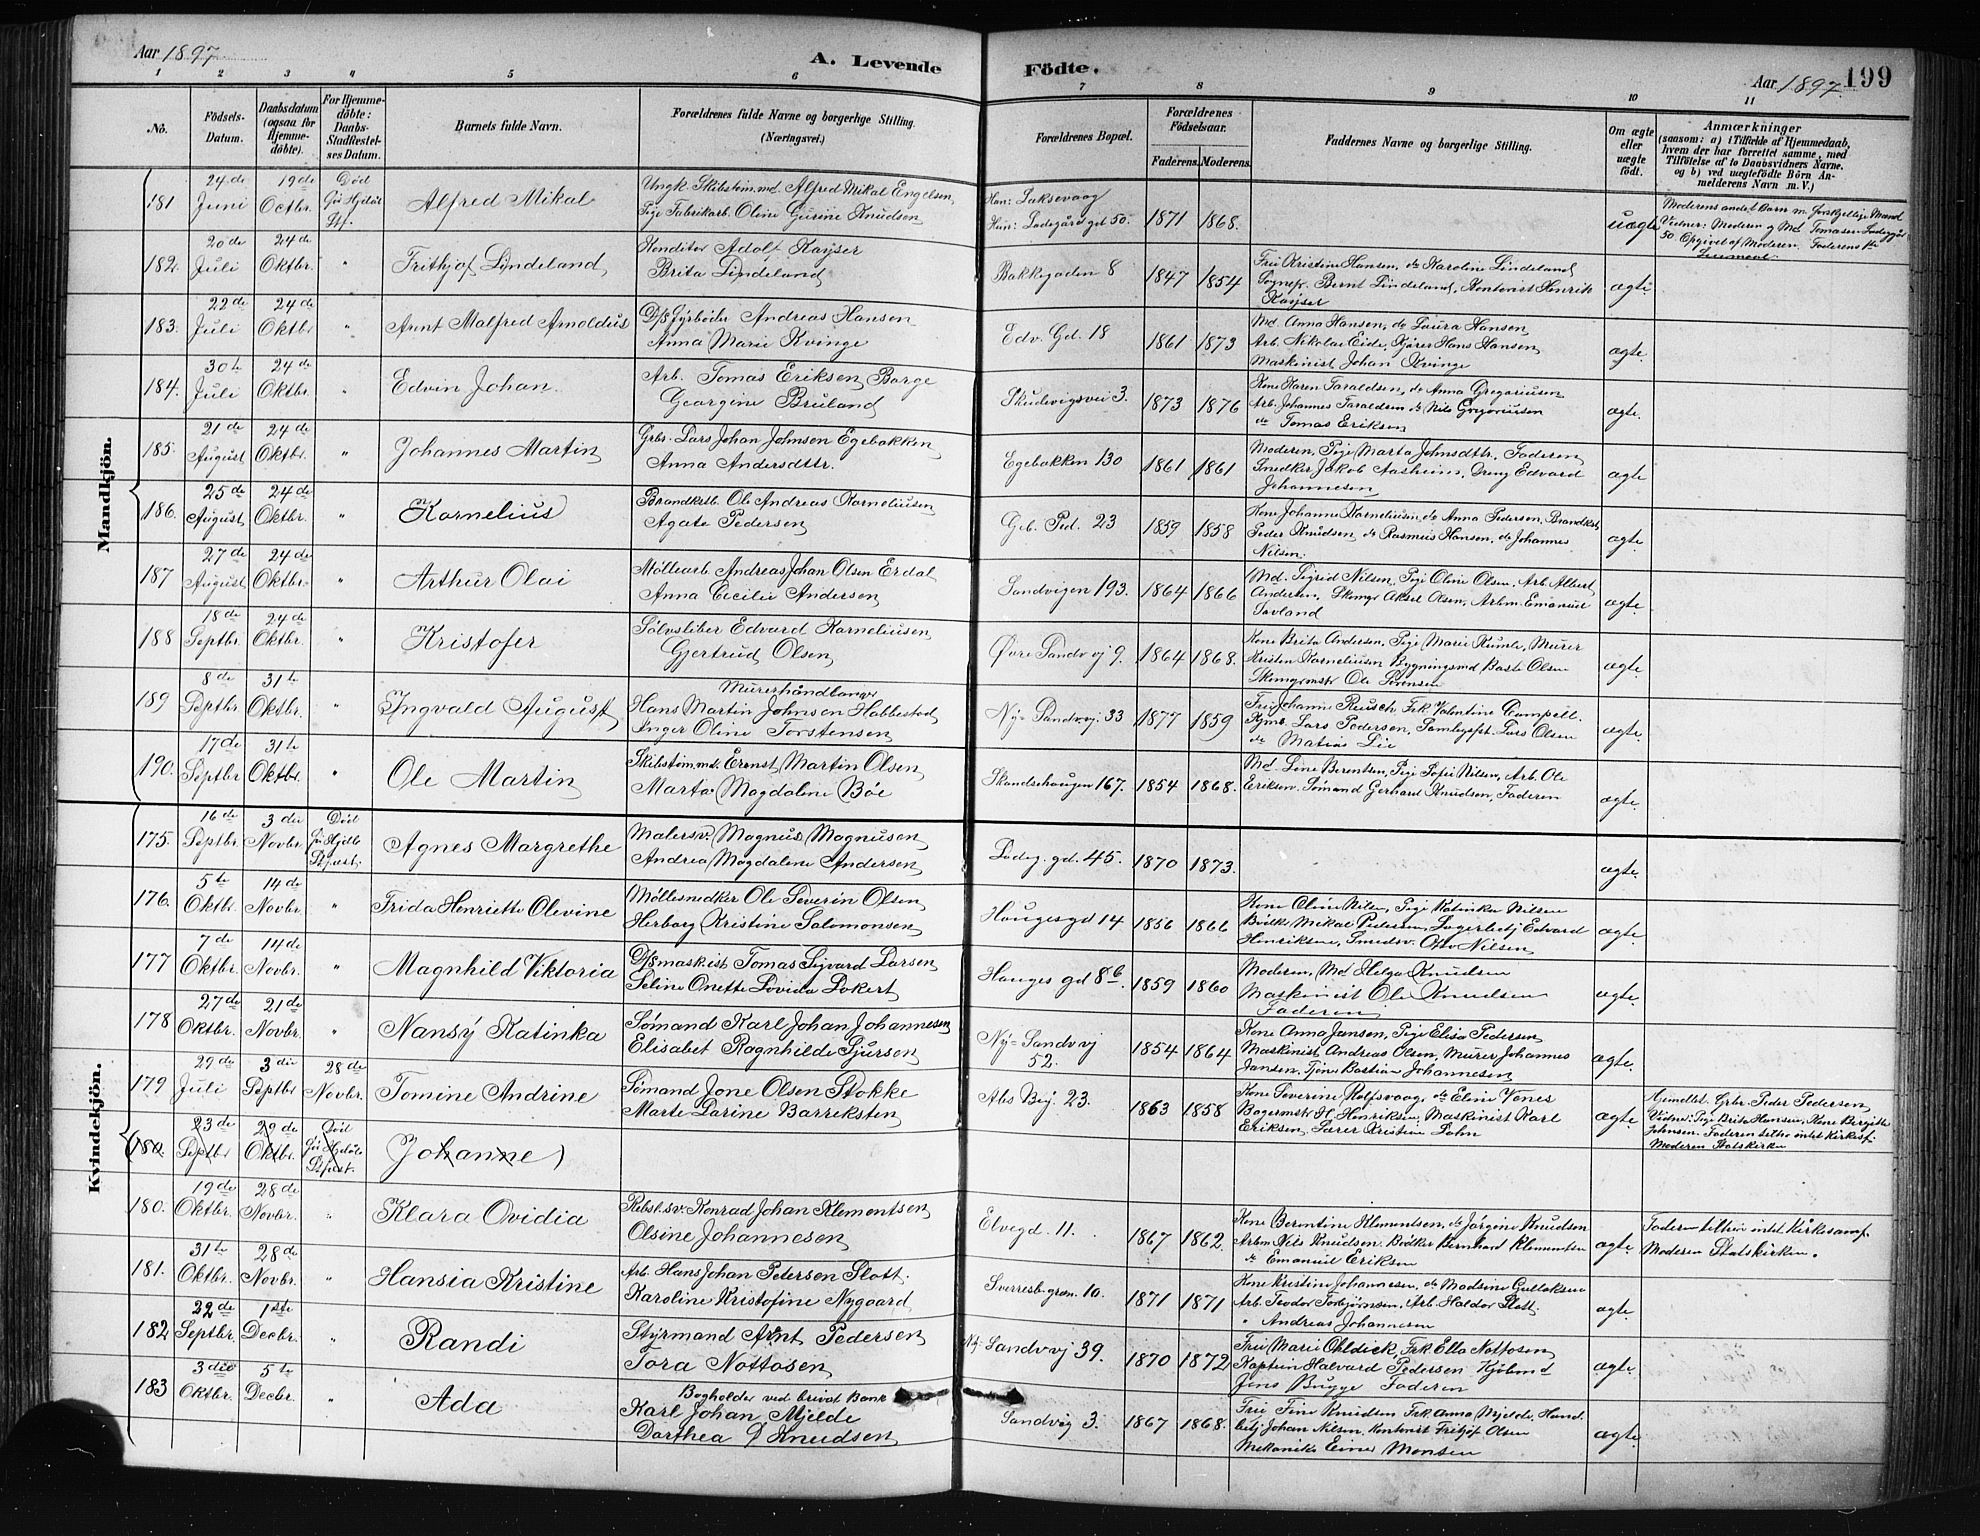 Aar 1897
A. Levende
Födte.
Aar 1897.
199
1 2 3 4 5 6 7 8 9 10 11
No.
Födsels-Datum.
Daabsdatum (ogsaa for Hjemmedöbte).
For Hjemmedöbte: Daabs-Stadfæstelses Datum.
Barnets fulde Navn.
Forældrenes fulde Navne og borgerlige Stilling.
(Næringsvei.)
Forældrenes Bopæl.
Forældrenes Födselsaar.
Faderens. Moderens.
Faddernes Navne og borgerlige Stilling.
Om ægte eller uægte födt.
Anmærkninger
(saasom: a) i Tilfælde af Hjemmedaab, hvem der har forrettet samme, med Tilföielse af to Daabsvidners Navne, og b) ved uægtefödte Börn Anmelderens Navn m. V.)
Mandkjön.
181 24de Juni 19de Octbr. Död Alfred Mikal
Ungk. Skibstøm.md. Alfred Mikal Engelsen
Pige Fabrikarb. Oline Gurine Knudsen
Han: Laksevaag
Hun: Ladegårdsgd 50. 1871 1868. uægte
Moderens andet Barn m. forskjellige Mænd
Vidner: Moderen og Md. Tomasen Ladeggd
50. Opgivet af Moderen. Faderens 1ste
Leiermaal.
182. 20de Juli 24de Oktbr. " Frithjof Lindeland
Konditor Adolf Kayser
Brita Lindeland
Bakkegaden 8 1847 1854
Frü Kristine Hansen, do Karoline Lindeland
Sognepr. Bernt Lindeland, Kontorist Henrik
Kayser ægte
183. 22de Juli 24de Oktbr " Arnt Malfred Arnoldus
D/s fyrböder Andreas Hansen
Anna Marie Kvinge
Edv. Gd. 18 1861 1873
Md. Anna Hansen, do Laura Hansen
Arb. Nikolai Eide, Kjører Hans Hansen
Maskinist Johan Kvinge ægte.
184. 30te Juli 24de Oktbr. " Edvin Johan.
Arb. Tomas Eriksen Borge
Georgine Bruland
Skudevigsvei 3. 1873 1876
Kone Karen Taraldsen, do Anna Gregoriusen
Arb. Johannes Taraldsen do Nils Gregoriusen
do Tomas Eriksen ægte.
185. 21de August 24de Oktbr. " Johannes Martin
Grbs. Lars Johan Johnsen Egebakken
Anna Andersdttr.
Egebakken 130 1861 1861
Moderen, Pige Marta Johnsdtr. Faderen
Snedker Jakob Aasheim, Dreng Edvard
Johannesen ægte
186. 25de August 24de Oktbr. " Kornelius
Brandkstb. Ole Andreas Korneliusen
Agate Pedersen
Geb. Ped. 23 1859 1858
Kone Johanne Korneliusen do Anna Pedersen, Brandkst.
Peder Knudsen, do Rasmus Hansen, do Johannes
Nilsen. ægte.
187 27de August 24de Oktbr. " Arthur Olai
Möllearb. Andreas Johan Olsen Erdal
Anna Cecilie Andersen
Sandvigen 193. 1864 1866
Md. Sigrid Nilsen, Pige Oline Olsen, Arb. Albert
Andersen, Skomgr Aksel Olsen, Arbm. Emanuel
Savland ægte.
188 18de Septbr. 24de Oktbr. " Kristofer
Sølvsliber Edvard Kornelius­en
Gjertrud Olsen
Øvre Sandvvj 9. 1864 1868.
Kone Brita Andersen, Pige Marie Kumle, Murer
Kristen Kornelius­en Bygningsmd Baste Olsen
Skomgrmstr Ole Sørensen ægte.
189 8de Septbr. 31te Oktbr. " Ingvald August
Murerhåndlanger
Hans Martin Johnsen Habbestad
Inger Oline Torstensen
Ny-Sandvvj. 33 1877 1859
Frü Johanne Reusch Frk Valentine Campell.
Lars Pedersen, Lars Olsen
do Matias Lie ægte.
190. 17de Septbr. 31te Oktbr. " Ole Martin
Skibstøm.md. Ernst Martin Olsen
Marta Magdalene Böe
Skandsehaugen 167. 1854 1868.
Md Line Berentsen, Pige Sofie Nilsen, Arb. Ole
Eriksen. Sømand Gerhard Knudsen, Faderen ægte.
Kvindekjön.
175. 16de Septbr. 3die Novbr. Död Agnes Margrethe
Malersv. Magnus Magnusen
Andrea Magdalene Andersen
Ladeg. gd. 45. 1870 1873. ægte.
176. 5te Oktbr. 14de Novbr. " Frida Henriette Olevine
Möllesnedker Ole Severin Olsen
Herborg Kristine Salomonsen
Haugesgd 14 1856 1866
Kone Oline Nilsen, Pige Katinka Nilsen
Bödk. Mikal Pedersen, Lagerbetj Edvard
Henriksen, Smedsv. Otto Nilsen ægte.
177 7de Oktbr. 14de Novbr. " Magnhild Viktoria
D/smaskist Tomas Sigvard Larsen
Seline Onette Lovida Lokert
Hauges gd 8b. 1859 1860
Moderen, Md Helga Knudsen
Maskinist Ole Knudsen
Faderen ægte.
178 27de Oktbr. 21de Novbr. " Nansy Katinka
Sømand Karl Johan Johannesen
Elisabet Ragnhilde Sjursen
Ny-Sandvvj
52. 1854 1864
Kone Anna Jansen, Pige Elisa Pedersen
Maskinist Andreas Olsen, Murer Johannes
Jansen, Tjener Bastian Johannesen ægte.
179 29de Juli 3die Septbr 28de Novbr. Tomine Andrine
Sømand Jone Olsen Stokke
Marte Larine Barreksten
Abs Bg. 23. 1863 1858
Kone Severine Rolfsvaag, do Eline Vones
Bagermstr H. Henriksen, Maskinist Karl
Eriksen, Lærer Kristian Dahn ægte.
Anmeldt. Grbr. Peder Pedersen
Vidner: Pige Brita Hansen, Kone Bergitte
Johnsen. Faderen tilhø. intet Kirkesf.
Moderen Statskirken
(180. 23de Septbr 29de Oktbr. Död Johanne)
180. 19de Oktbr. 28de Novbr. " Klara Ovidia
Rebsl.sv. Konrad Johan Klementsen
Olsine Johannesen
Elvegd. 11. 1867 1862.
Kone Berentine Klementsen, do Jørgine Knudsen
Arbm Nils Knudsen. Bödker Bernhard Klementsen
do Emanuel Eriksen ægte.
Faderen tilhører intet Kirkesamf.
Moderen Statskirken.
181. 31te Oktbr. 28de Novbr. " Hansia Kristine
Arb. Hans Johan Petersen Slott.
Karoline Kristofine Nygaard
Sverresb. græn. 10. 1871 1871
Kone Kristine Johannesen, do Madsine Gulloksen
Arb. Teodor Torbjørnsen, Arb. Haldor Slott
" Andreas Johannesen ægte.
182 22de Septbr. 1ste Decbr. " Randi
Styrmand Arnt Pedersen
Tora Nottosen
Ny-Sandvvj 39. 1870 1872
Frü Marie Ohldieck, Frk. Ella Nottosen
Kaptein Halvard Pedersen Kjøbmd
Jens Bugge Faderen ægte.
183 3die Oktbr. 5te Decbr. " Ada
Bogholder ved privat Bank
Karl Johan Mjelde
Dorthea D Knudsen
Sandvig 3. 1867 1868.
Frü Tine Knudsen Frk. Anna Mjelde, Handbetj
Johan Nilsen, Kontorist Fritjof Olsen
Mekaniker Einer Monsen ægte.